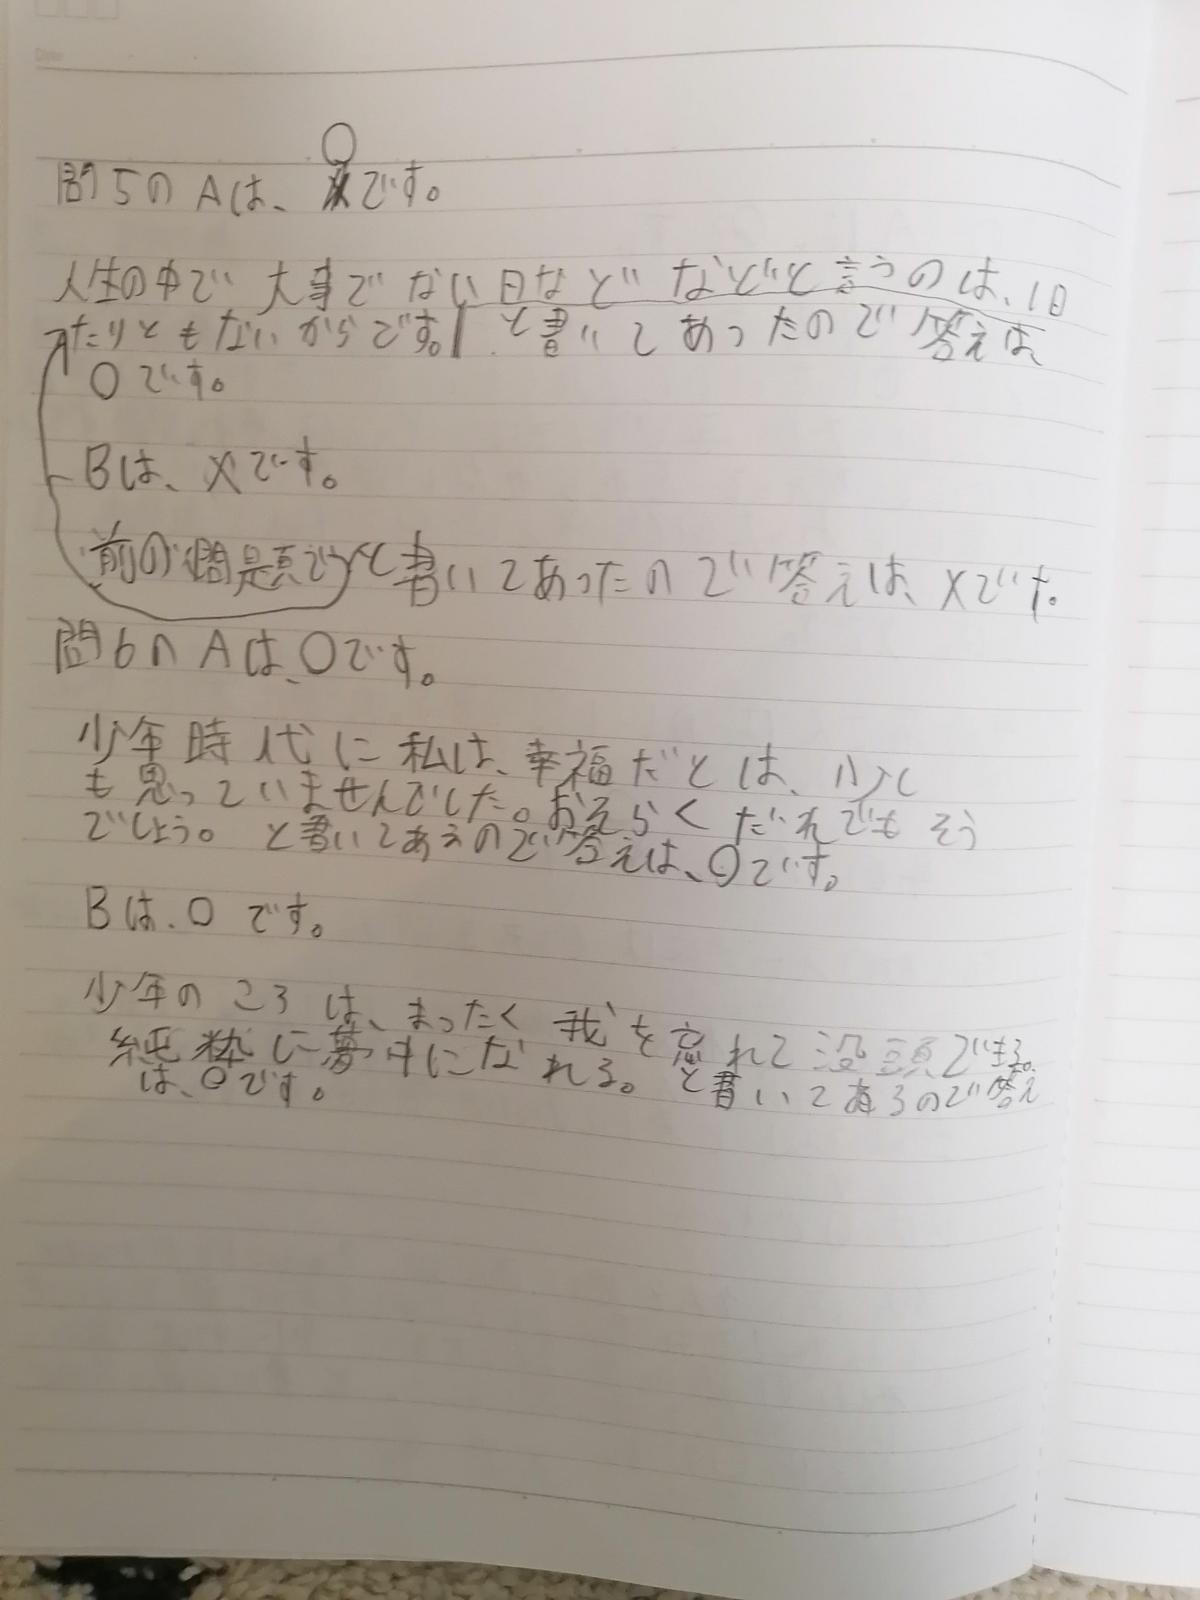 Date
○
問5のAは、✕です。
人生の中で大事でない日などなどと言うのは、1日
たりともないからです。と書いてあったので答えは、
○です。
Bは、✕です。
前の問題でと書いてあったので答えは、✕です。
問6のAは、○です。
少年時代に私は、幸福だとは、少し
も思っていませんでした。おそらくだれでもそう
でしょう。と書いてあるので答えは、○です。
Bは、○です。
少年のころは、まったく我を忘れて没頭できる。
純粋に夢中になれる。と書いてあるので答え
は、○です。